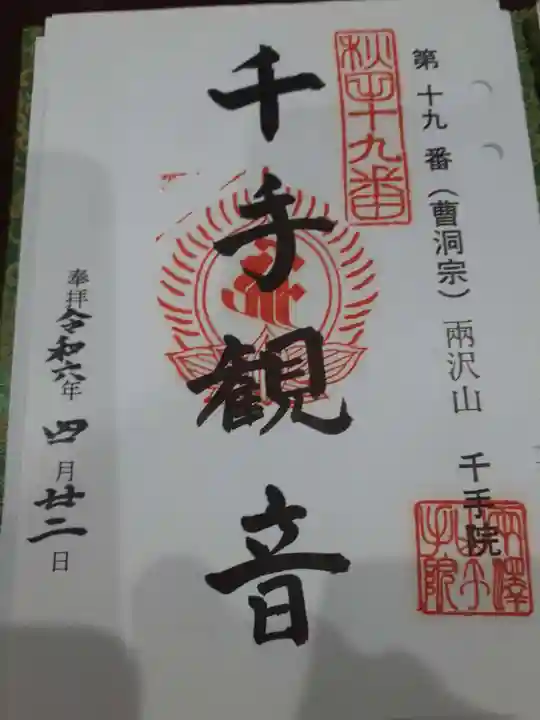 第十九番(曹洞宗) 兩沢山 千手院
秩父十九番
千手観音
奉拝 令和六年 四月廿二日